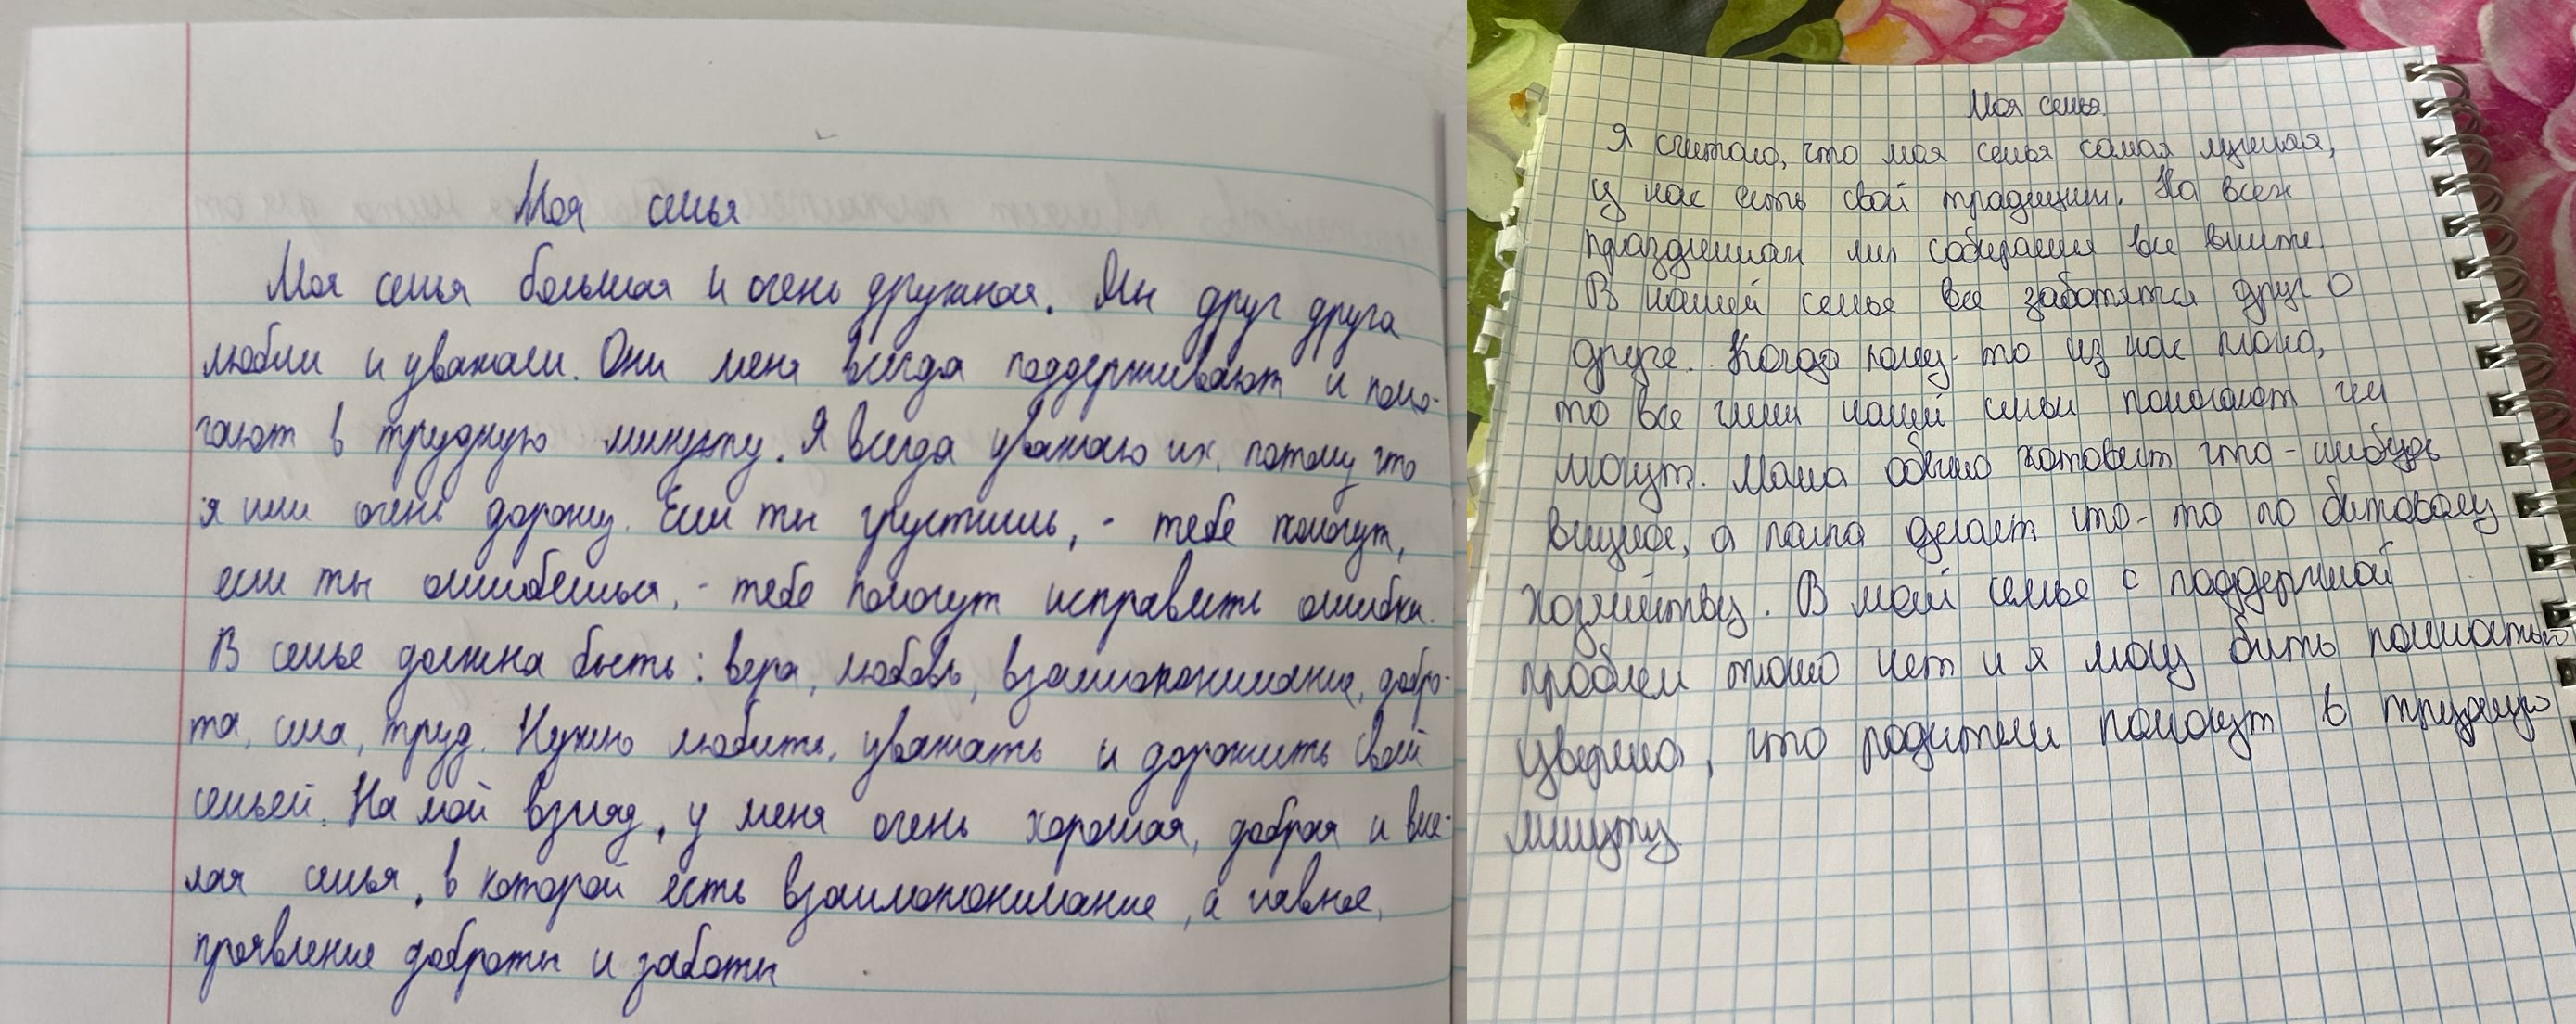 Моя семья
Моя семья большая и очень дружная. Мы друг друга
любим и уважаем. Они меня всегда поддерживают и помо-
гают в трудную минуту. Я всегда уважаю их, потому что
я ими очень дорожу. Если ты грустишь, - тебе помогут,
если ты ошибёшься, - тебе помогут исправить ошибки.
В семье должна быть: вера, любовь, взаимопонимание, добро-
та, сила, труд. Нужно любить, уважать и дорожить своей
семьей. На мой взгляд, у меня очень хорошая, добрая и весе-
лая семья, в которой есть взаимопонимание, а главное,
проявление доброты и заботы
Моя семья.
Я считаю, что моя семья самая лучшая,
у нас есть свои традиции. На всех
праздниках мы собираемся все вместе.
В нашей семье все заботятся друг о
друге. Когда кому-то из нас плохо,
то все члены нашей семьи помогают чем
могут. Мама обычно готовит что-нибудь
вкусное, а папа делает что-то по бытовому
хозяйству. В моей семье с поддержкой
проблем точно нет и я могу быть полностью
уверена, что родители помогут в трудную
минуту.